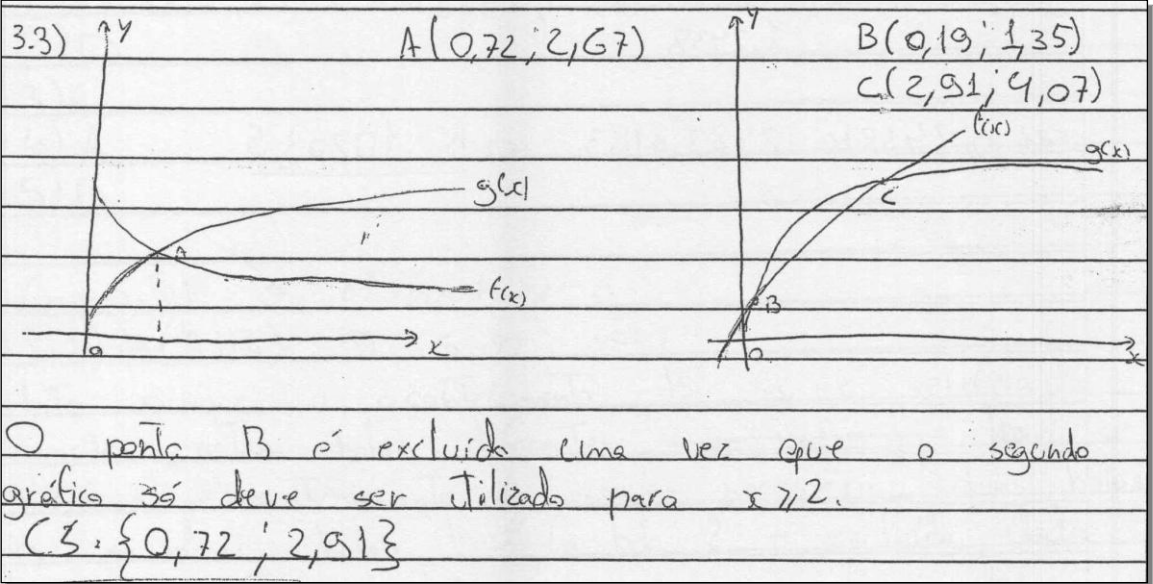 3.3)
y
A(0,72 ; 2,67)
g(x)
A
f(x)
x
0
y
B(0,19 ; 1,35)
C(2,91 ; 4,07)
f(x)
g(x)
C
B
0
x
O ponto B é excluído uma vez que o segundo
gráfico só deve ser utilizado para x⩾2.
CS: {0,72 ; 2,91}